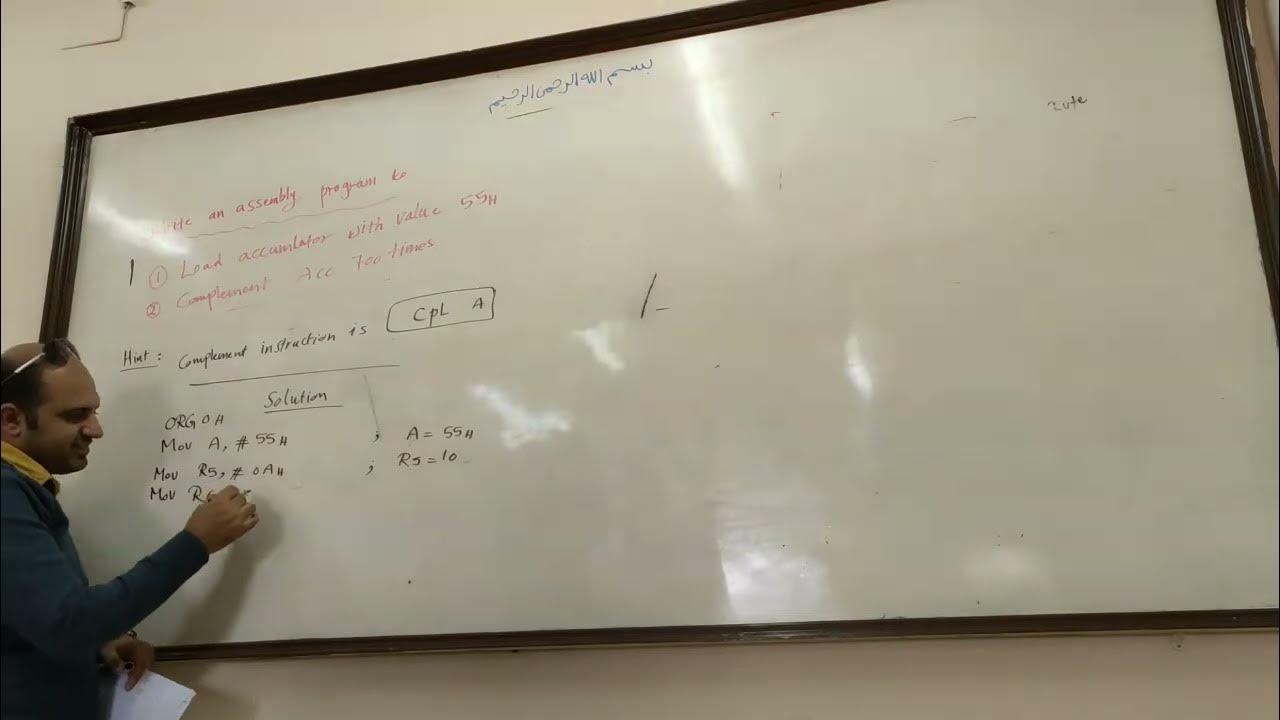 بسم الله الرحمن الرحيم
Write an assembly program to
① Load accumlator with value 55H
② Complement Acc 700 times
Hint: Complement instruction is CPL A
Solution
ORG 0H
Mov A, #55H ; A = 55H
Mov R5, #0AH ; R5 = 10
Mov